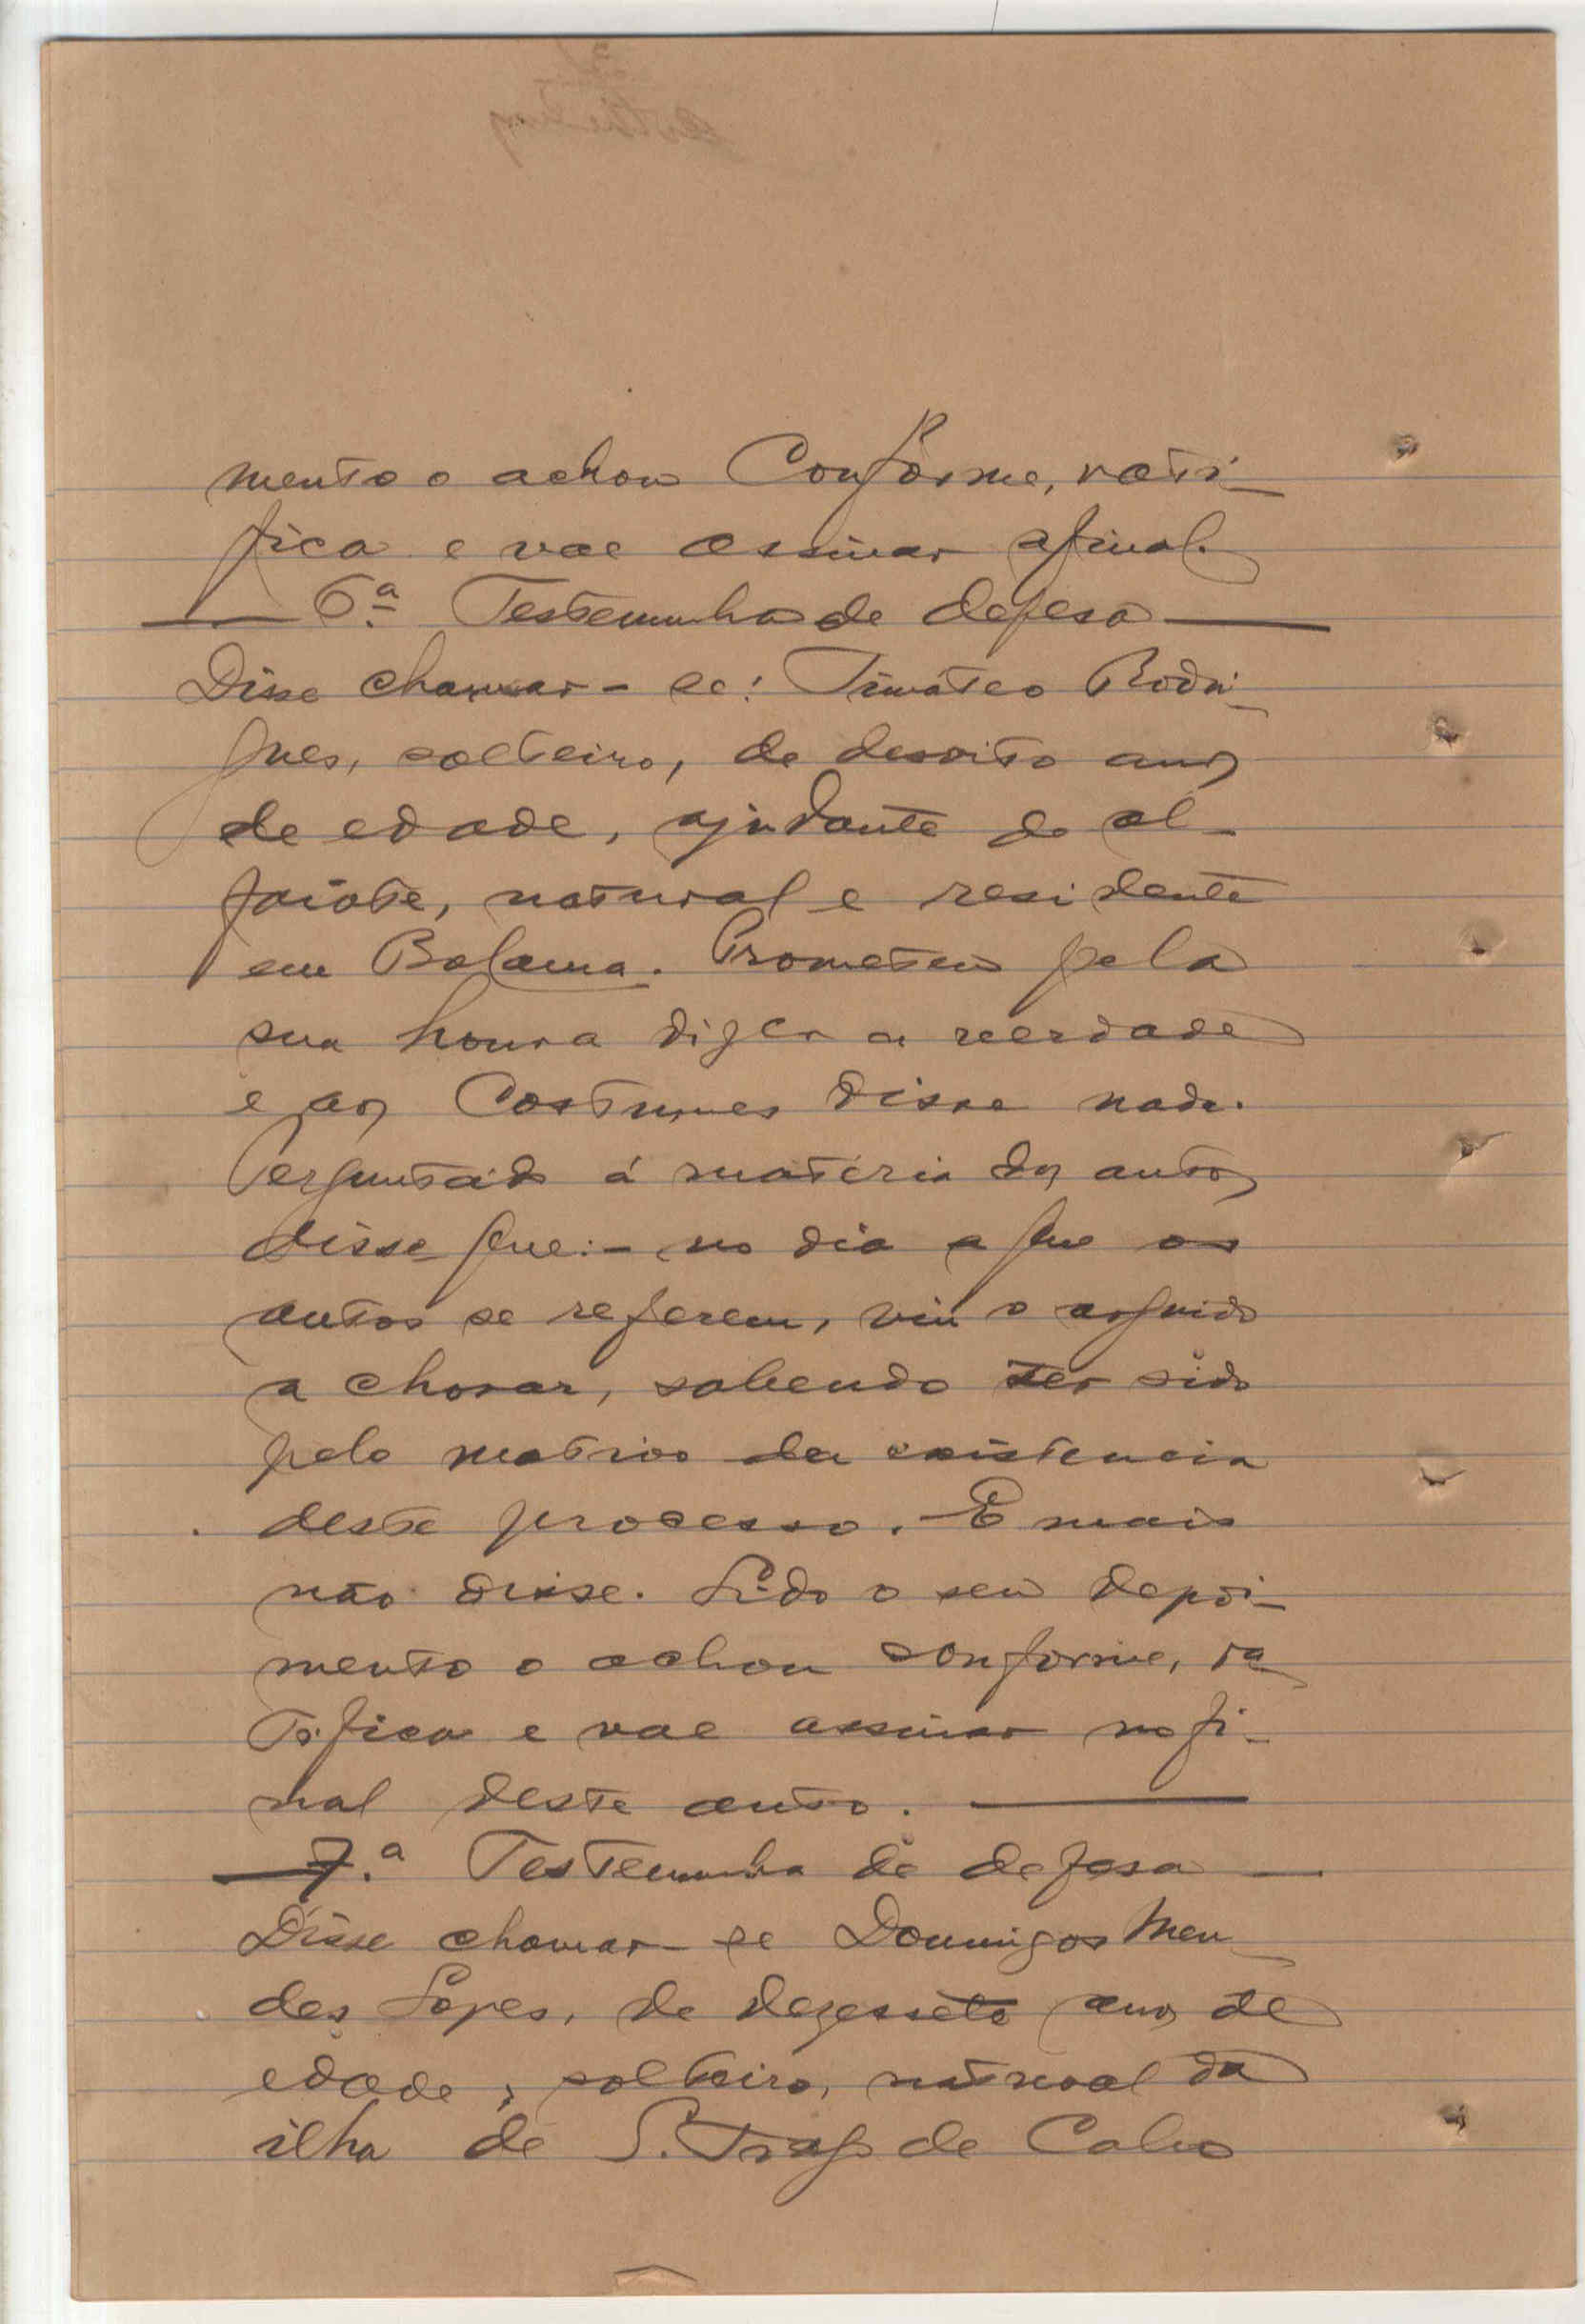 mento o achou Conforme, rati-
fica e vae assinar afinal.
— 6.ª Testemunha de defesa —
Disse chamar-se: Timóteo Rodri-
gues, solteiro, de desoito anos
de edade, ajudante de al-
faiate, natural e residente
em Bolama. Prometeu pela
sua honra dizer a verdade
e aos Costumes disse nada.
Perguntado á matéria dos autos
disse que:- no dia a que os
autos se referem, viu o arguido
a chorar, sabendo ter sido
pelo motivo da existencia
deste processo. E mais
não disse. Lido o seu depoi-
mento o achou conforme, ra
tifica e vae assinar no fi-
nal deste auto. —
— 7.ª Testemunha de defesa —
Disse chamar-se Domingos Men
des Lopes, de dezessete anos de
edade, solteiro, natural da
ilha de S. Tiago de Cabo